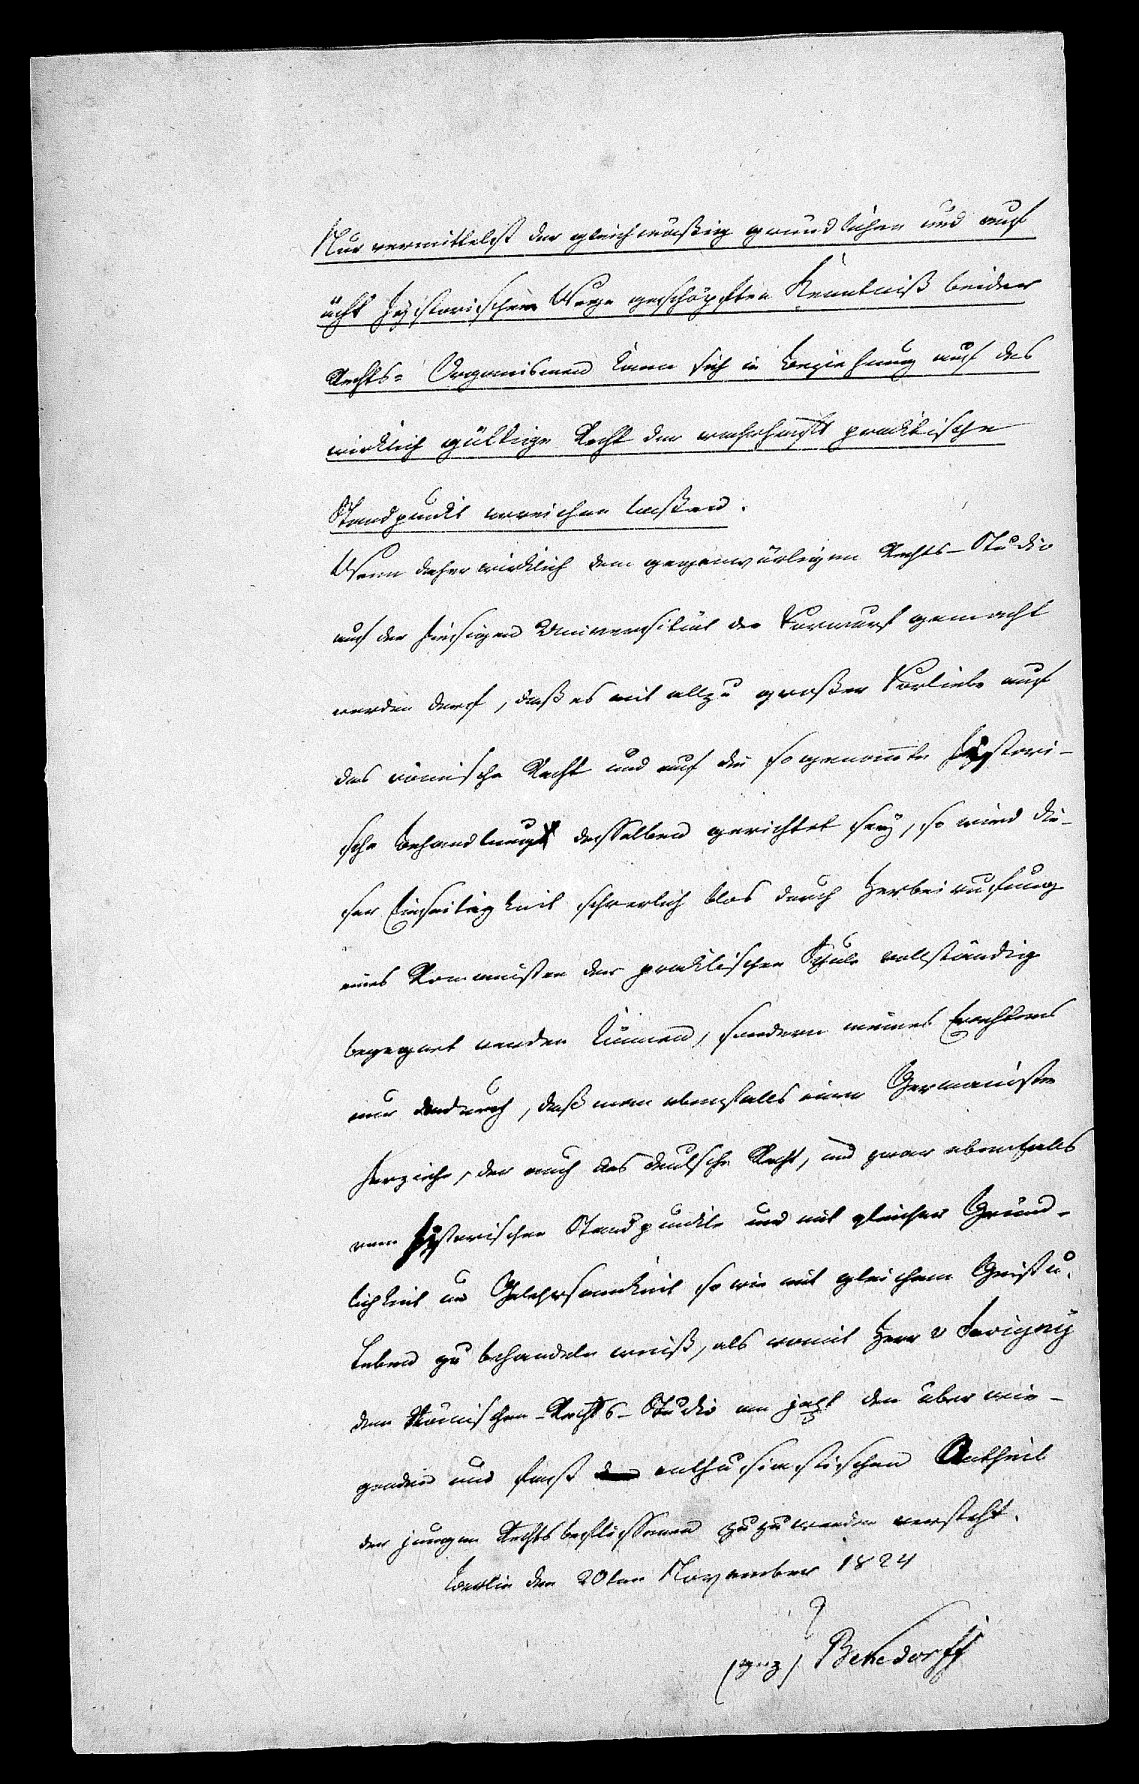 Nur vermittelst der gleichmäßig gründlichen und auf
ächt hystorischem Wege geschöpften Kenntniß beider
Rechts-Organismen kann sich in Beziehung auf das
wirklich gültige Recht der wahrhaft praktische
Standpunkt erreichen laßen.
Wenn daher wirklich dem gegenwärtigen Rechts-Studio
auf der hiesigen Universität der Vorwurf gemacht
werden darf, daß es mit allzu großer Vorliebe auf
das römische Recht und auf die sogenannte hystori-
sche Behandlung desselben gerichtet sey, so wird die-
ser Einseitigkeit schwerlich blos durch Herbeirufung
eines Romanisten der praktischen Schule vollständig
begegnet werden können, sondern meines Erachtens
nur dadurch, daß man ebenfalls einen Germanisten
herziehe, der auch das deutsche Recht, und zwar ebenfalls
vom hystorischen Standpunkte und mit gleicher Gründ-
lichkeit und Gelehrsamkeit so wie mit gleichem Geist u.
Leben zu behandeln weiß, als womit Herr v Savigny
dem Römischen-Rechts-Studio den überwie-
genden und fast enthusiastischen Antheil
der jungen Rechtsbeflissenen zuzuwenden versteht.
Berlin den 20ten November 1824
?
(gez) Beckedorff